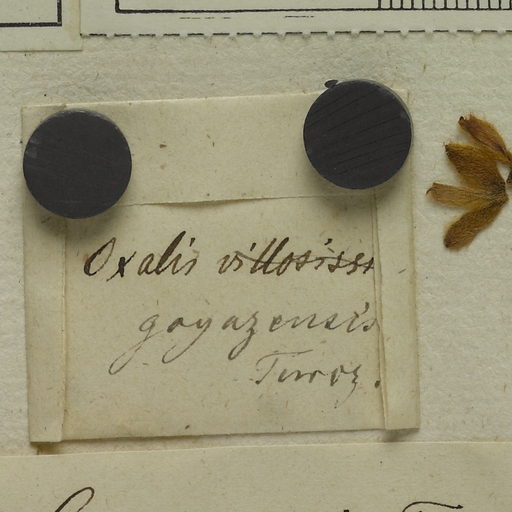 Oxalis villosiss
goyazensis
Turcz.